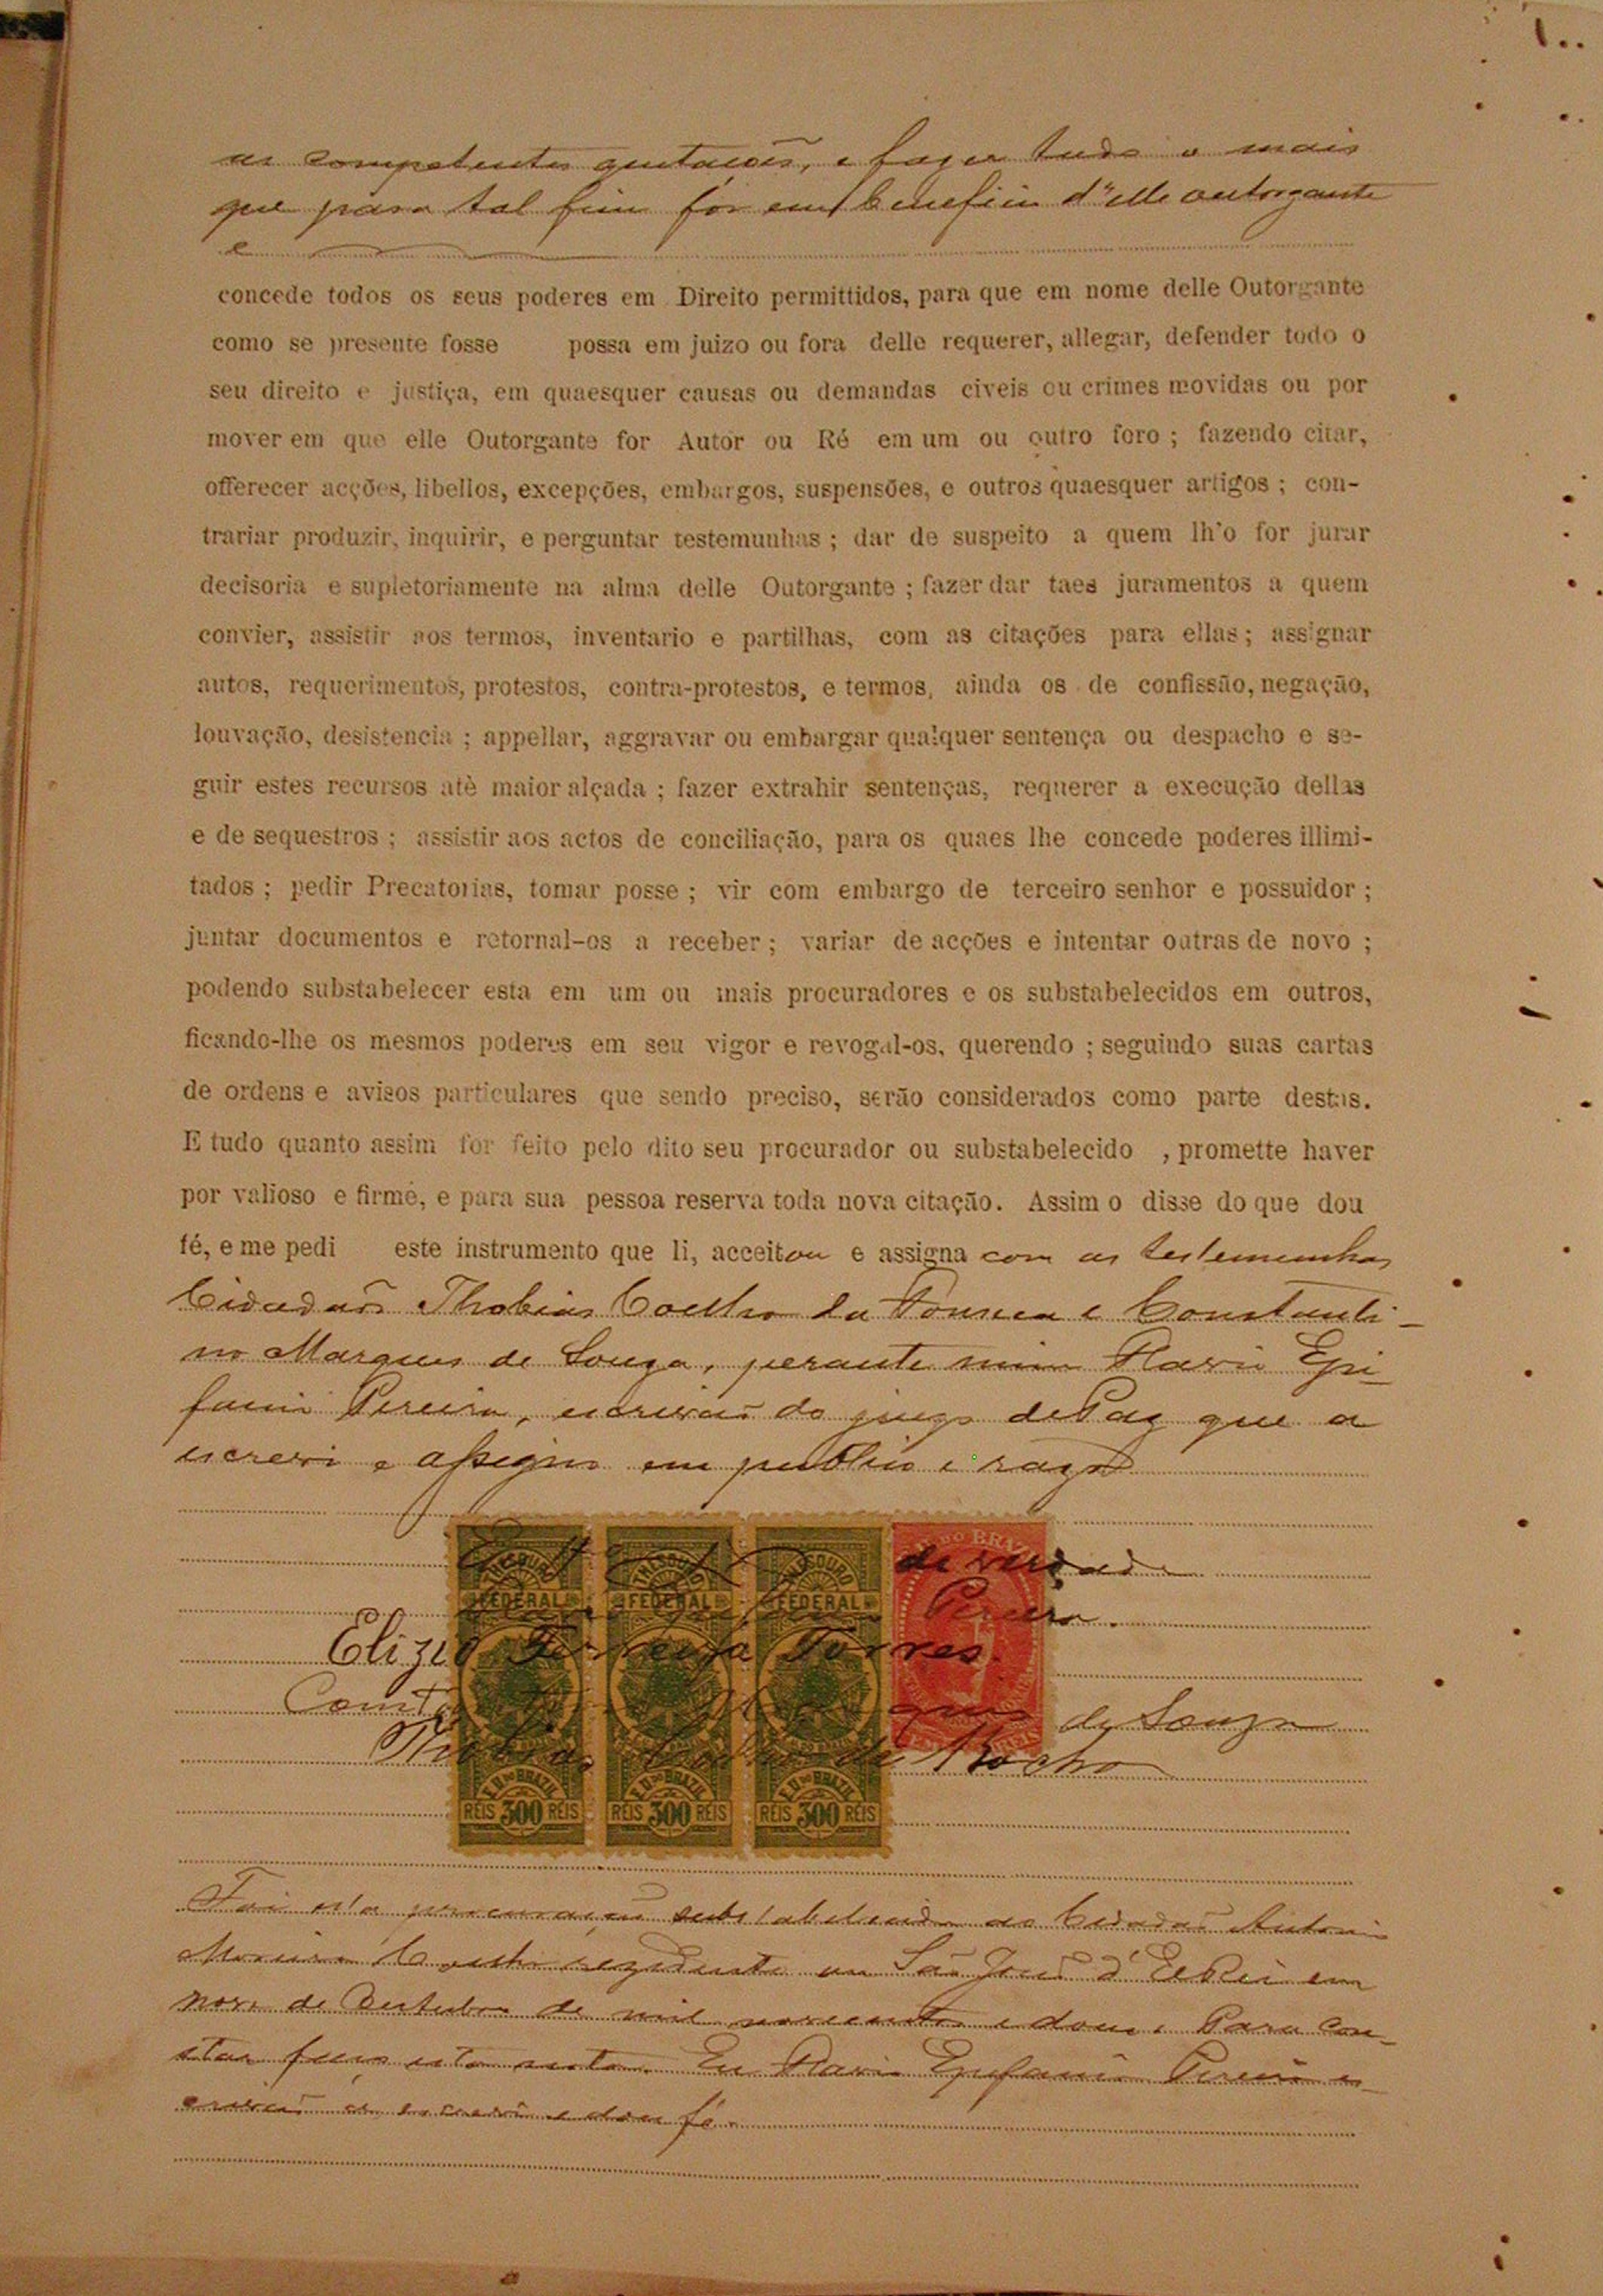 as competentes quitações, e fazer tudo o mais
que para tal fim for em beneficio d'elle outorgante
e
concede todos os seus poderes em Direito permittidos, para que em nome delle Outorgante
como se presente fosse possa em juizo ou fora delle requerer, allegar, defender todo o
seu direito e justiça, em quaesquer causas ou demandas civeis ou crimes movidas ou por
mover em que elle Outorgante for Autor ou Ré em um ou outro foro ; fazendo citar,
offerecer acções, libellos, excepções, embargos, suspensões, e outros quaesquer artigos ; con-
trariar produzir, inquirir, e perguntar testemunhas ; dar de suspeito a quem lh'o for jurar
decisoria e supletoriamente na alma delle Outorgante ; fazer dar taes juramentos a quem
convier, assistir aos termos, inventario e partilhas, com as citações para ellas ; assignar
autos, requerimentos, protestos, contra-protestos, e termos, ainda os de confissão, negação,
louvação, desistencia ; appellar, aggravar ou embargar qualquer sentença ou despacho e se-
guir estes recursos atè maior alçada ; fazer extrahir sentenças, requerer a execução dellas
e de sequestros ; assistir aos actos de conciliação, para os quaes lhe concede poderes illimi-
tados ; pedir Precatorias, tomar posse ; vir com embargo de terceiro senhor e possuidor ;
juntar documentos e retornal-os a receber ; variar de acções e intentar outras de novo ;
podendo substabelecer esta em um ou mais procuradores e os substabelecidos em outros,
ficando-lhe os mesmos poderes em seu vigor e revogal-os, querendo ; seguindo suas cartas
de ordens e avisos particulares que sendo preciso, serão considerados como parte destas.
E tudo quanto assim for feito pelo dito seu procurador ou substabelecido , promette haver
por valioso e firme, e para sua pessoa reserva toda nova citação. Assim o disse do que dou
fé, e me pedi este instrumento que li, acceitou e assigna com as testemunhas
Cidadãos Thobias Coelho da e Constanti-
no Marques de Souza, perante mim Flavio Epi
fanio Pereira, escrivão do juizo de Paz que a
escrevi e assigno em publico e razo
de verdade
Pereira
Elizio Ferreira Torres
Marques de Souza
Thobias Coelho da Rocha
THESOURO THESOURO THESOURO
FEDERAL FEDERAL FEDERAL
E.U. DO BRAZIL E.U. DO BRAZIL E.U. DO BRAZIL
REIS 300 REIS REIS 300 REIS REIS 300 REIS
DO BRAZIL
REIS
Foi esta procuração substabelecida ao Cidadão Antonio
Moreira rezidente em São João d'El Rei em
nove de Outubro de mil novecentos e dous. Para con-
star faço esta nota. Eu Flavio Epifanio Pereira es-
crivão a escrevi e dou fé.